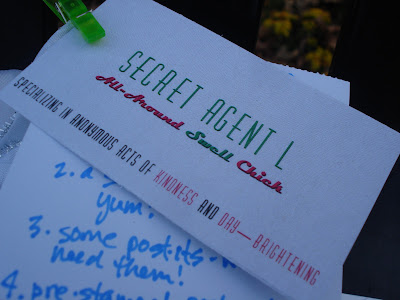 SECRET AGENT L
All-Around Swell Chick
SPECIALIZING IN ANONYMOUS ACTS OF KINDNESS AND DAY—BRIGHTENING
2. a
yum!
3. some post its -
need them!
4. pre-stamped